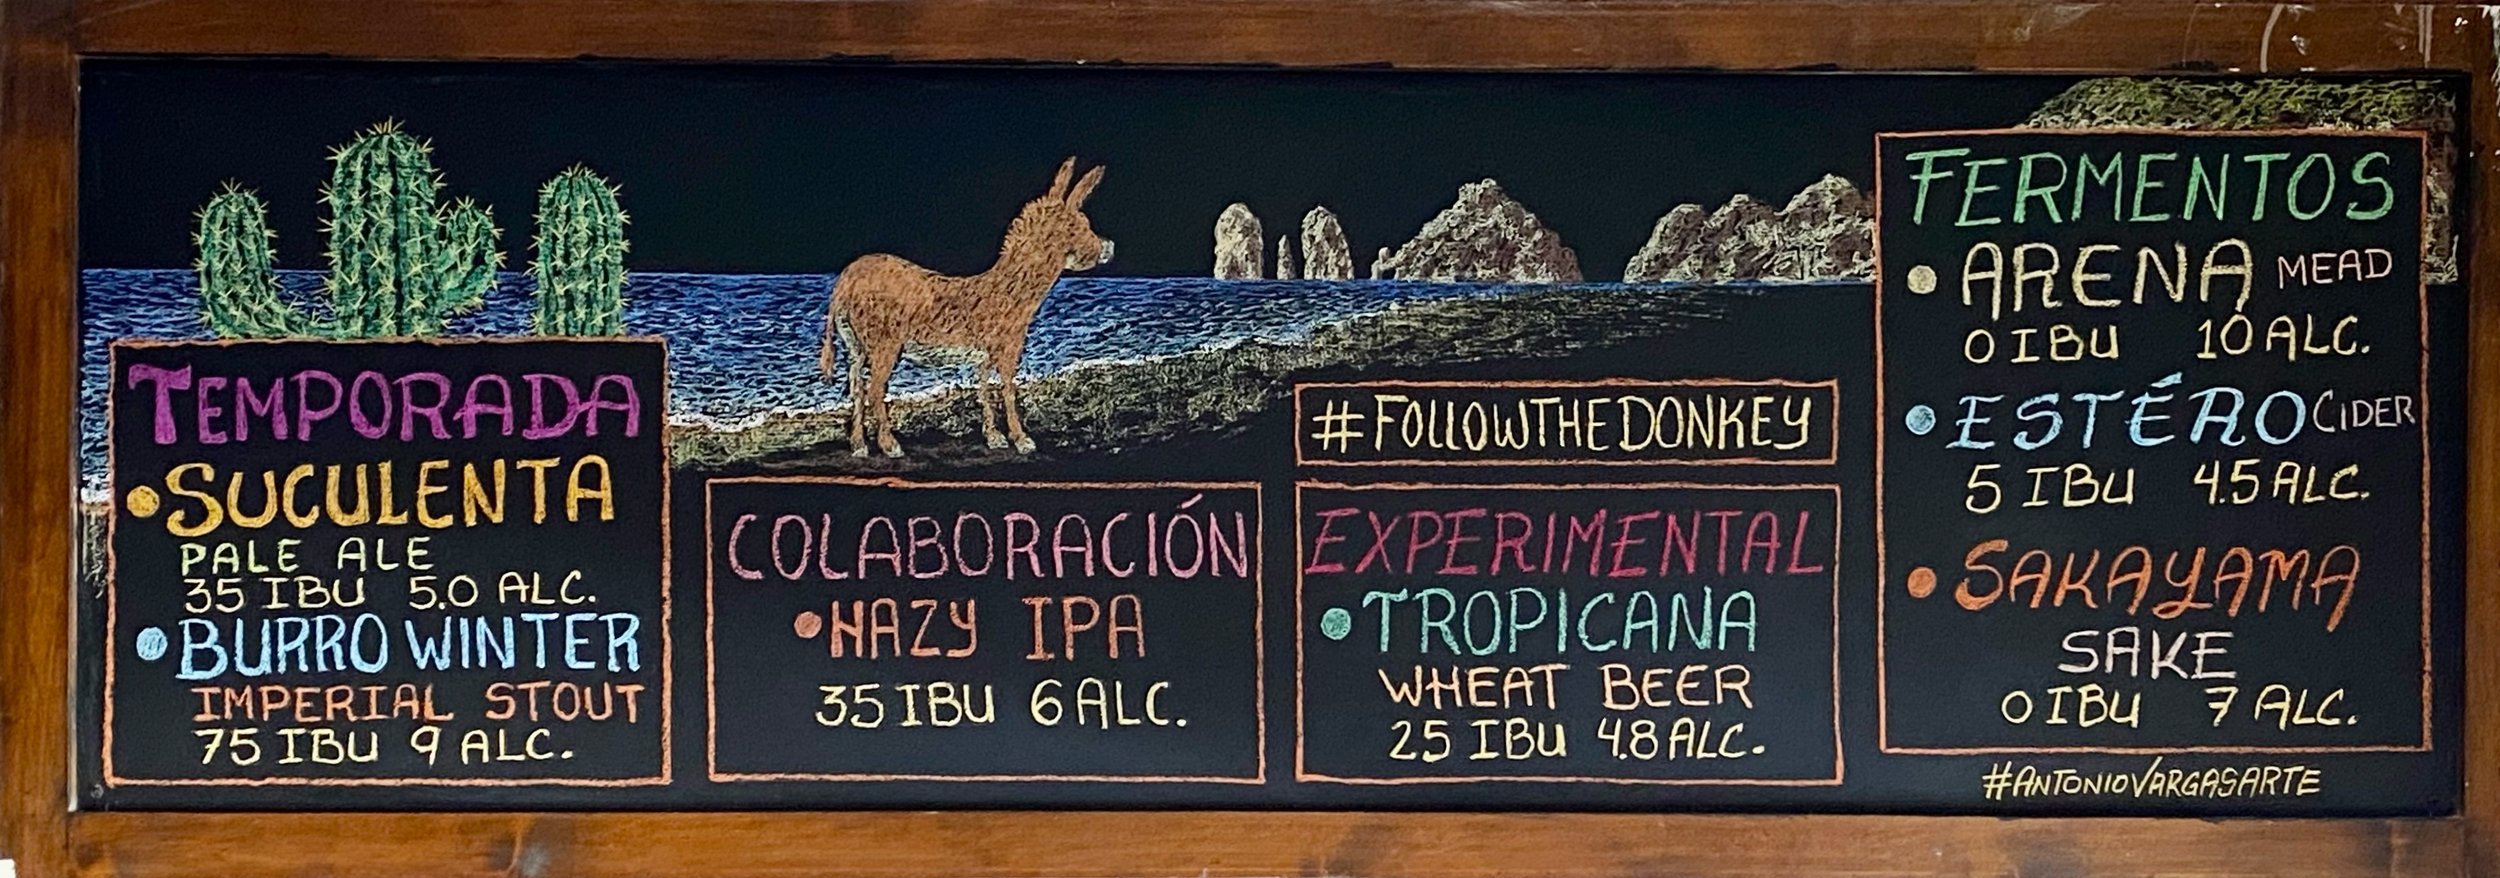 TEMPORADA
SUCULENTA
PALE ALE
35 IBU 5.0 ALC.
BURRO WINTER
IMPERIAL STOUT
75 IBU 9 ALC.
COLABORACIÓN
HAZY IPA
35 IBU 6 ALC.
#FOLLOWTHEDONKEY
EXPERIMENTAL
TROPICANA
WHEAT BEER
25 IBU 4.8 ALC.
FERMENTOS
ARENA MEAD
0 IBU 10 ALC.
ESTÉRO CIDER
5 IBU 4.5 ALC.
SAKAYAMA
SAKE
0 IBU 7 ALC.
#ANTONIOVARGASARTE